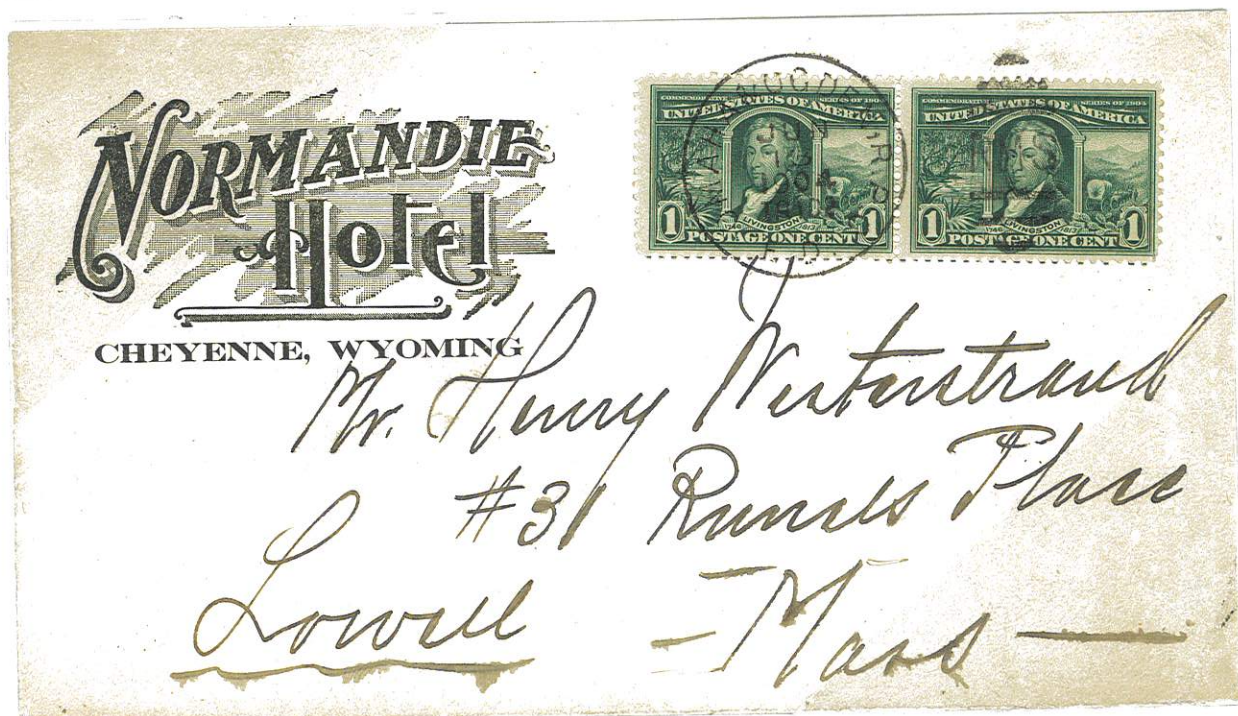 NORMANDIE
HOTEL
CHEYENNE, WYOMING
COMMEMORATIVE SERIES OF 1904
UNITED STATES OF AMERICA
LIVINGSTON
1 POSTAGE ONE CENT 1
COMMEMORATIVE SERIES OF 1904
UNITED STATES OF AMERICA
LIVINGSTON
1 POSTAGE ONE CENT 1
OMAHA & OGDEN R.P.O.
JUN
1904
Mr. Henry Westerstrand
#31 Runels Place
Lowell - Mass -